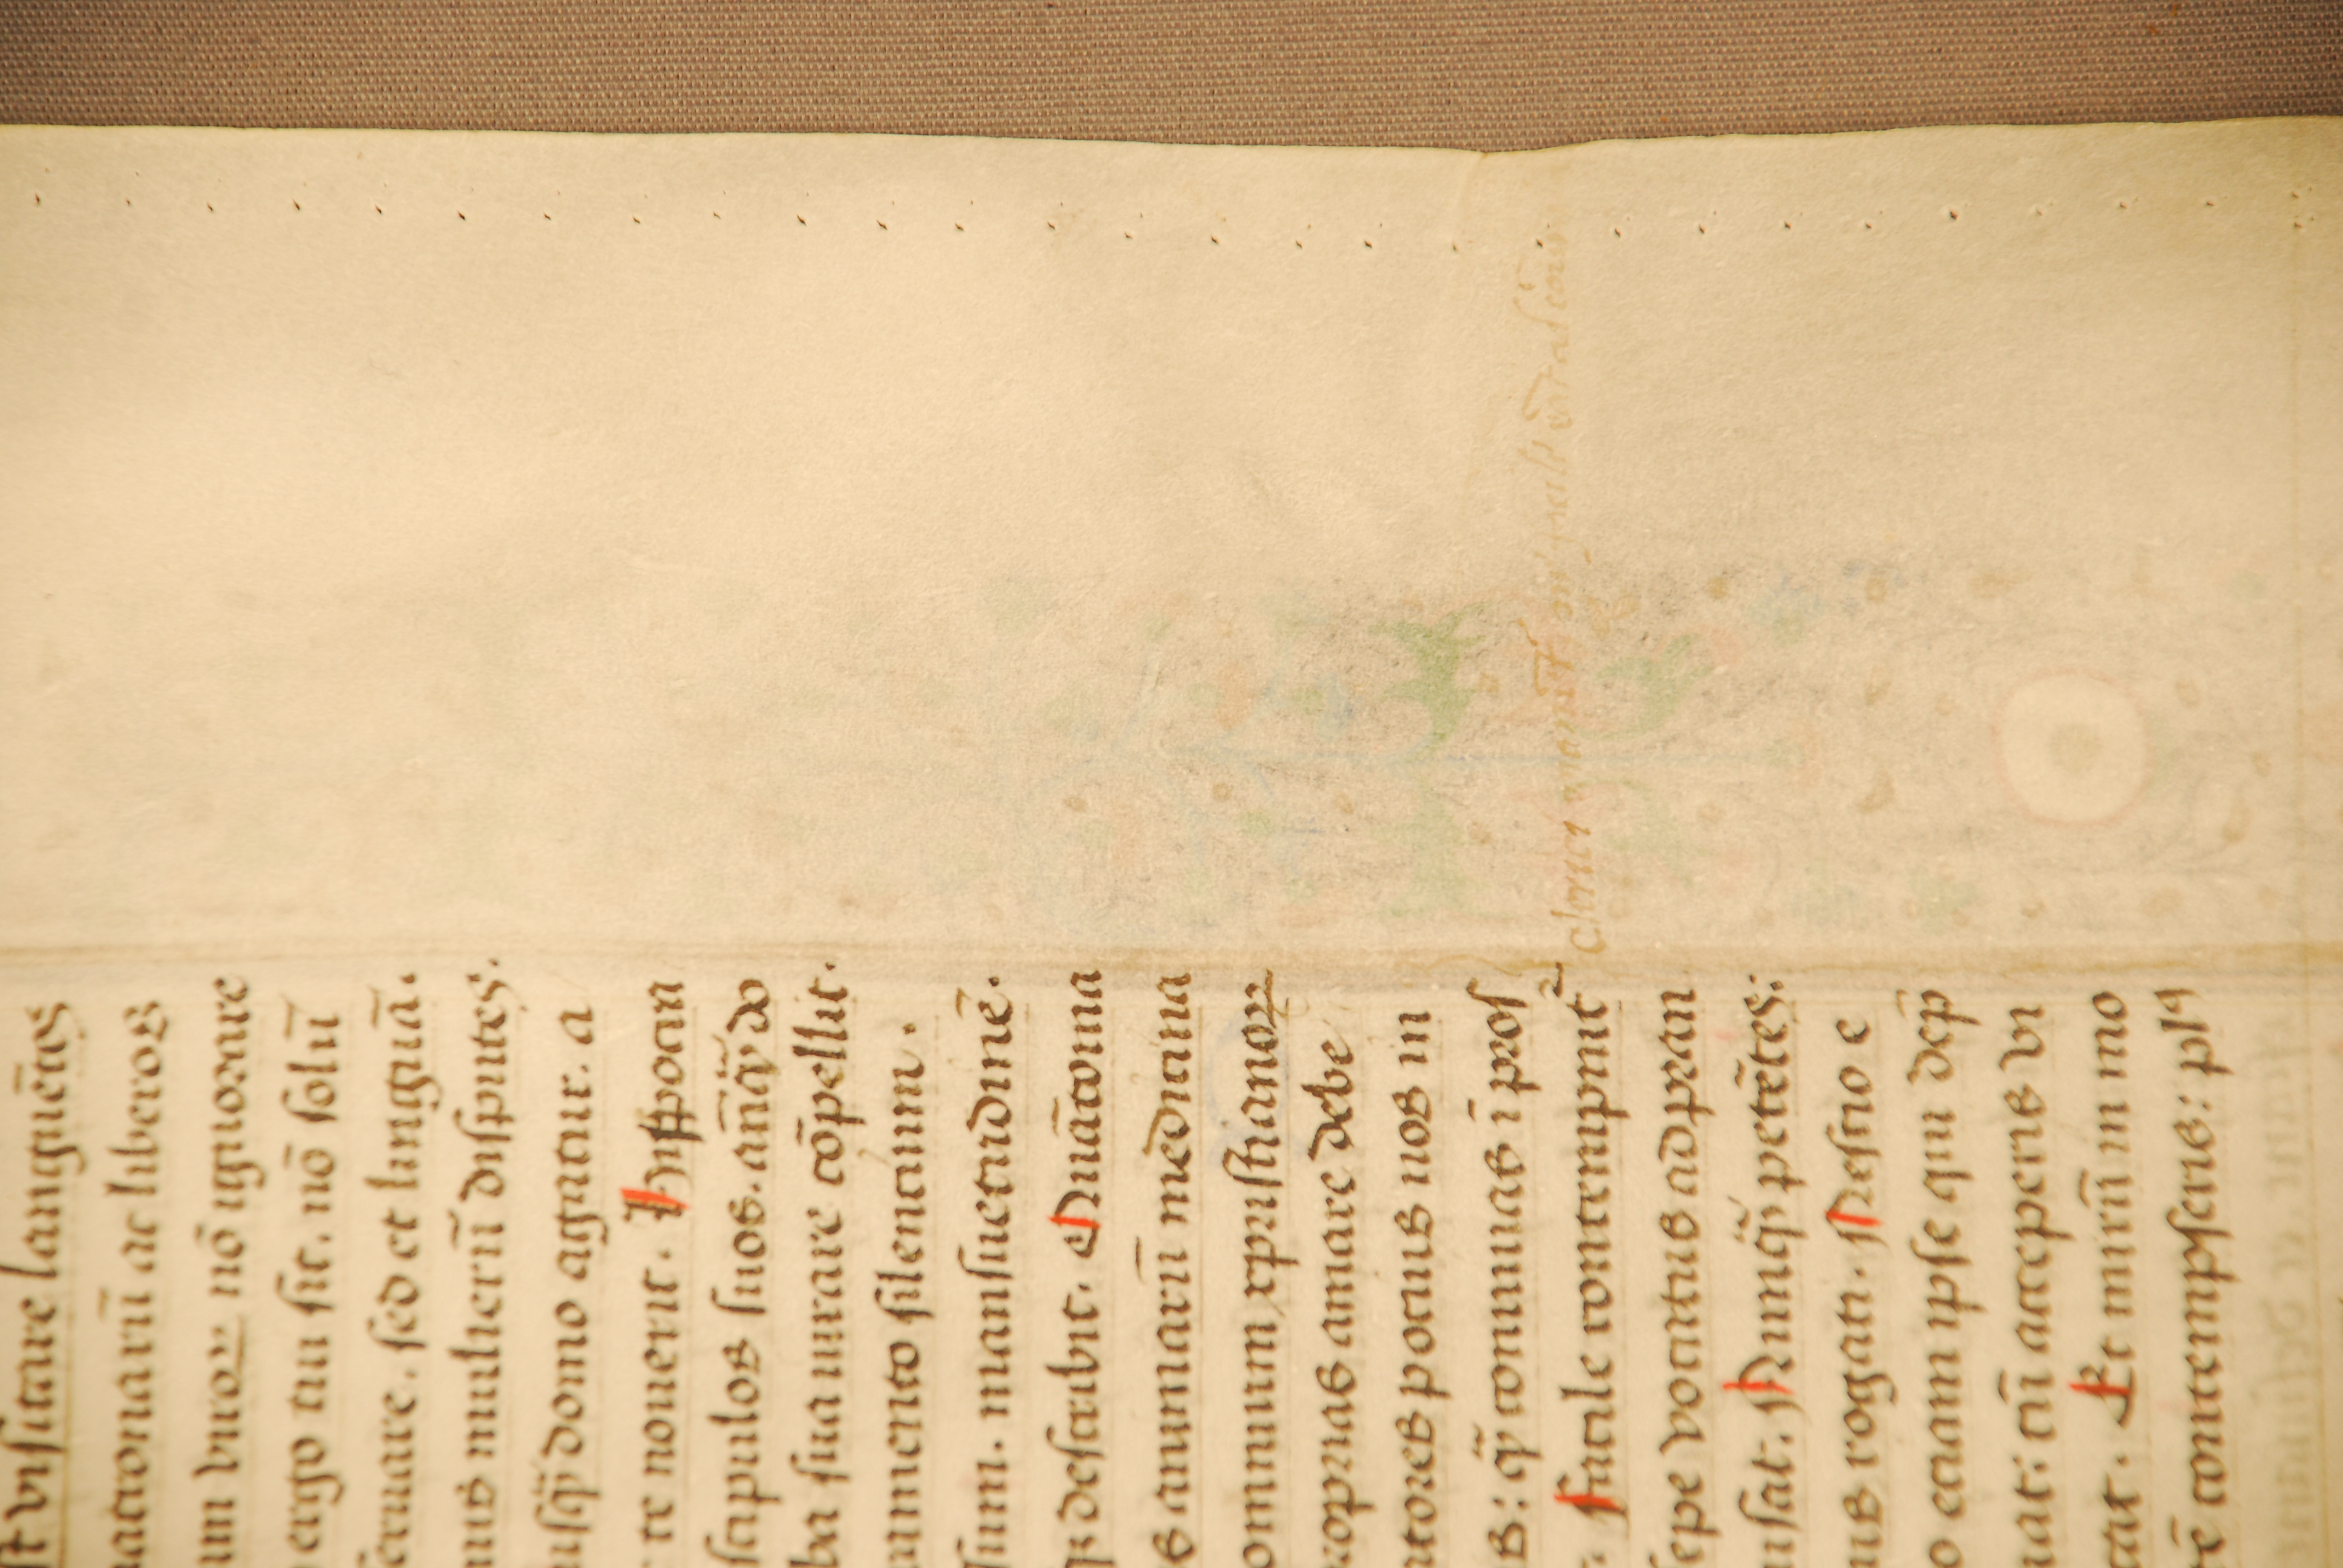 st visitare languētes
natronarū ac liberos
um viroꝝ nō ignorare
ergo tui sit. nō solū
seruare. sed et linguā.
mis mulierū disputes.
usq̄ domo agatur. a
te nouerit. Hyppocra
scipulos suos. anteq̄ do
ba sua iurare cōpellit.
amento silentium.
sum. mansuetudinē.
qꝫ describit. Quāto ma
s animarū medicina
omnium xpristianoꝝ
propias amare debe
atores potius nos in
s: q̄ conuiuas ī pros
facile contempnit
sepe vocatus ad pran
usat. Nunq̄ petētes:
us rogati. Nescio e
o enim ipse qui dep
uat: cū acceperis vi
cat. Et mirū in mo
ē contempseris: plꝰ